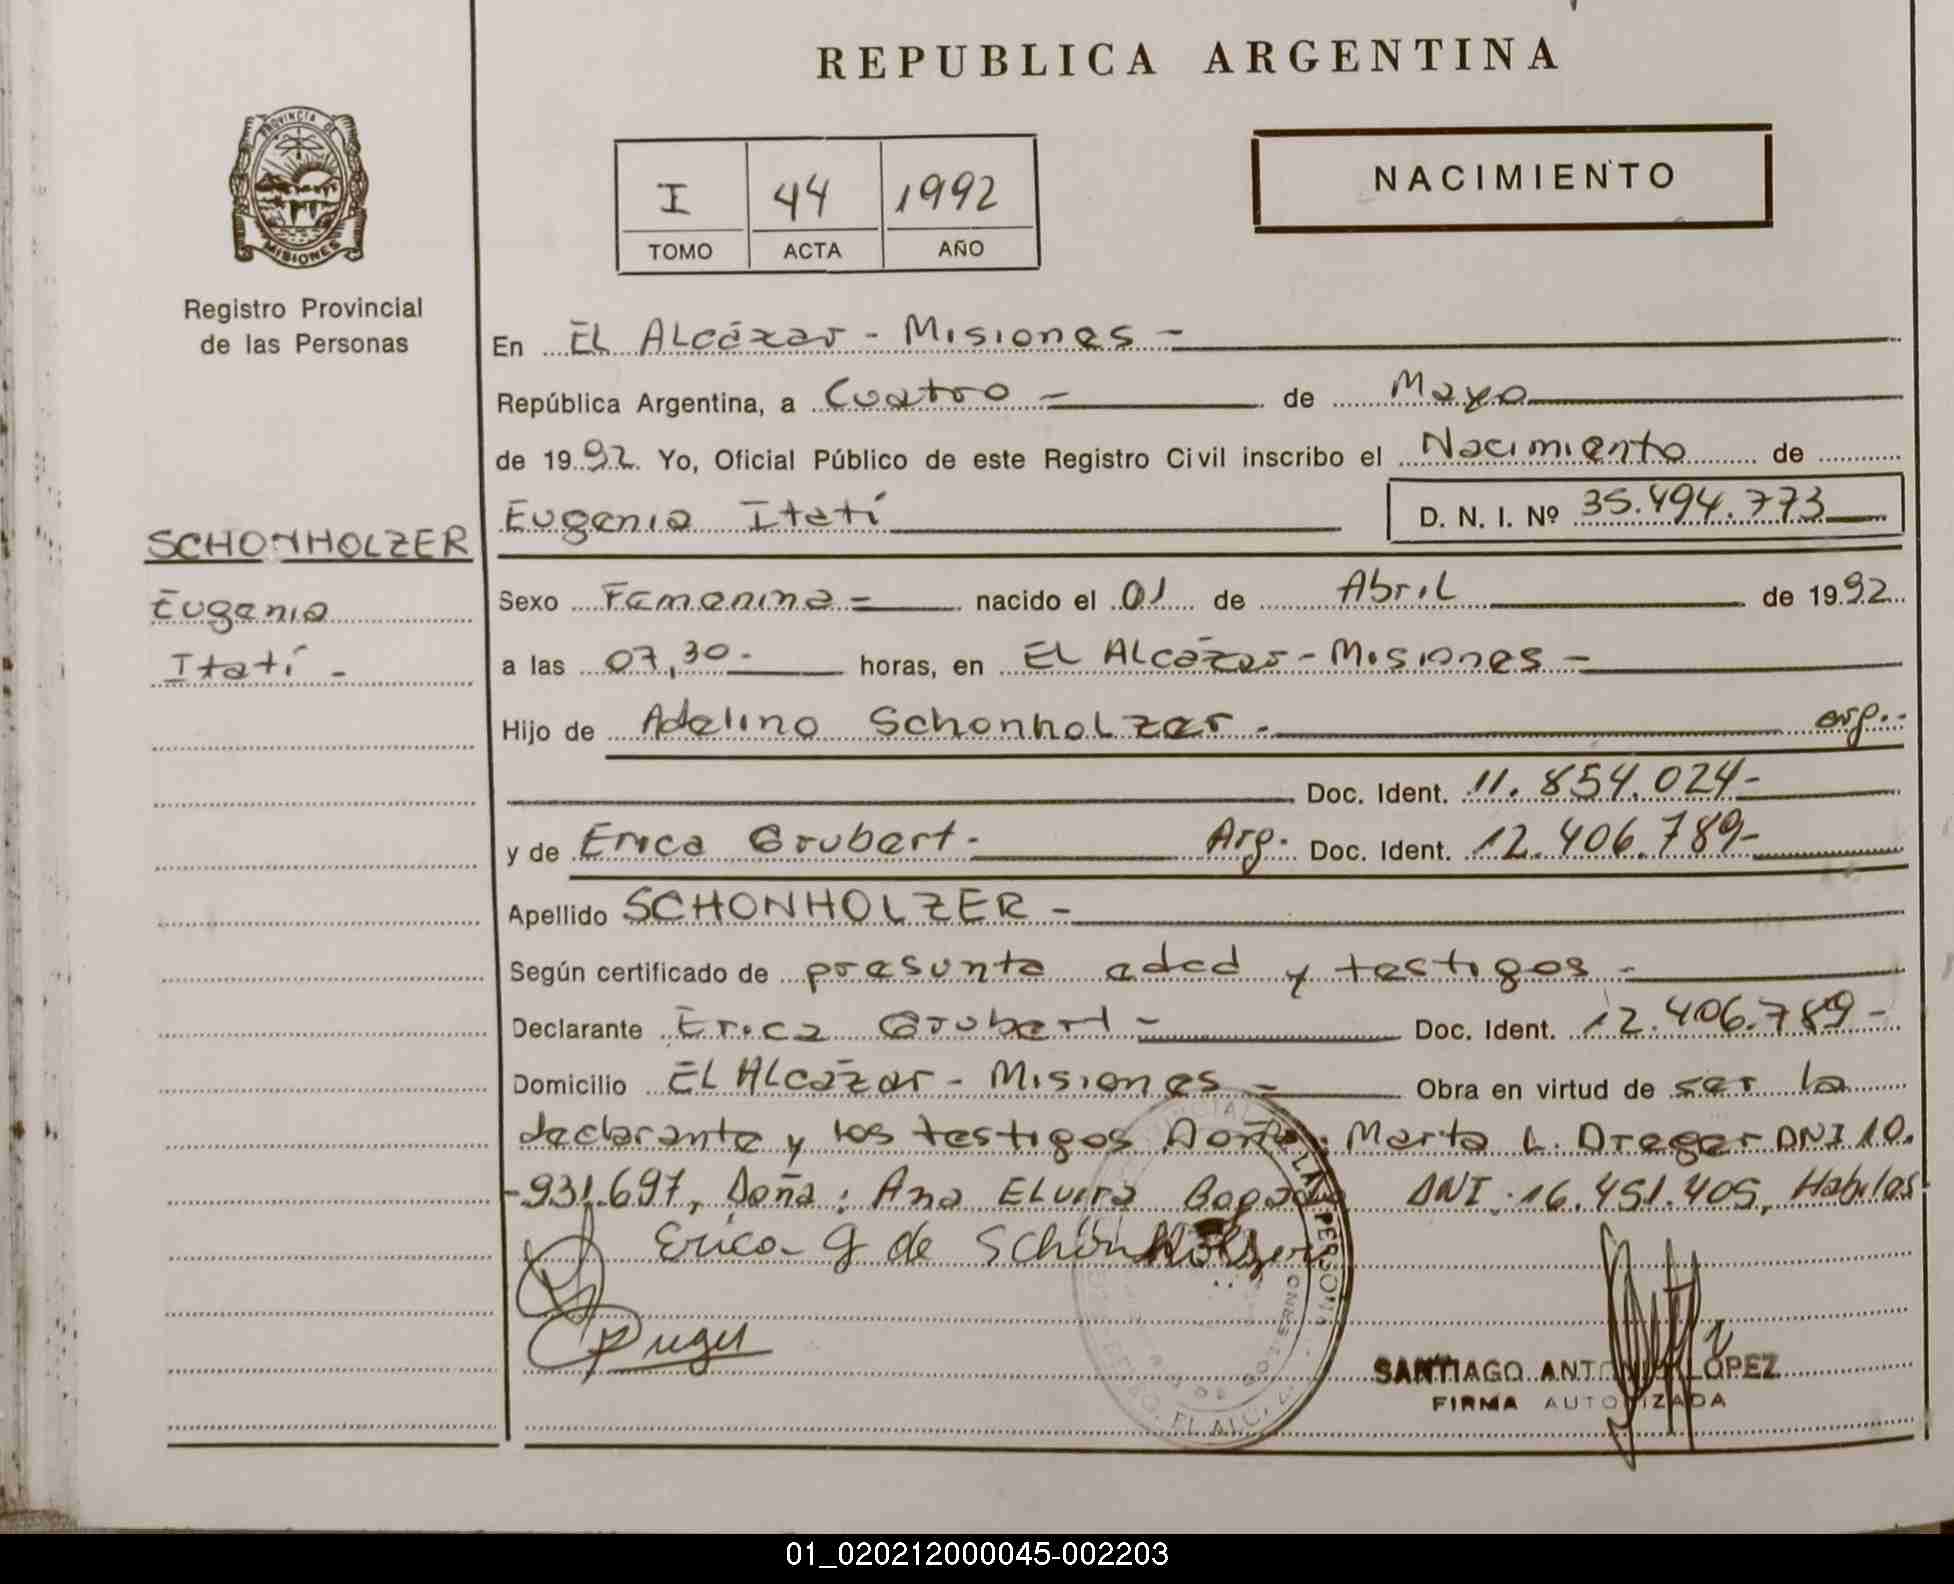 REPUBLICA ARGENTINA
PROVINCIA DE
MISIONES
Registro Provincial
de las Personas
I 44 1992
TOMO ACTA AÑO
NACIMIENTO
En El Alcázar - Misiones -
República Argentina, a Cuatro - de Mayo
de 1992. Yo, Oficial Público de este Registro Civil inscribo el Nacimiento de
Eugenia Itatí D. N. I. Nº 35.494.773
SCHONHOLZER
Eugenia
Itatí -
Sexo Femenina - nacido el 01 de Abril de 1992
a las 07,30- horas, en El Alcázar - Misiones -
Hijo de Adelino Schonholzer - arg.-
Doc. Ident. 11.854.024-
y de Erica Grubert - Arg. Doc. Ident. 12.406.789-
Apellido SCHONHOLZER -
Según certificado de presunta edad y testigos -
Declarante Erica Grubert - Doc. Ident. 12.406.789-
Domicilio El Alcázar - Misiones - Obra en virtud de ser la
declarante y los testigos Doña: Marta L. Dreger DNI 10.
-931.697, Doña: Ana Elvira Bogado DNI 16.451.405, Habiles
Erica G de Schönholzer
Dreger
SANTIAGO ANTONIO LOPEZ
FIRMA AUTORIZADA
01_020212000045-002203